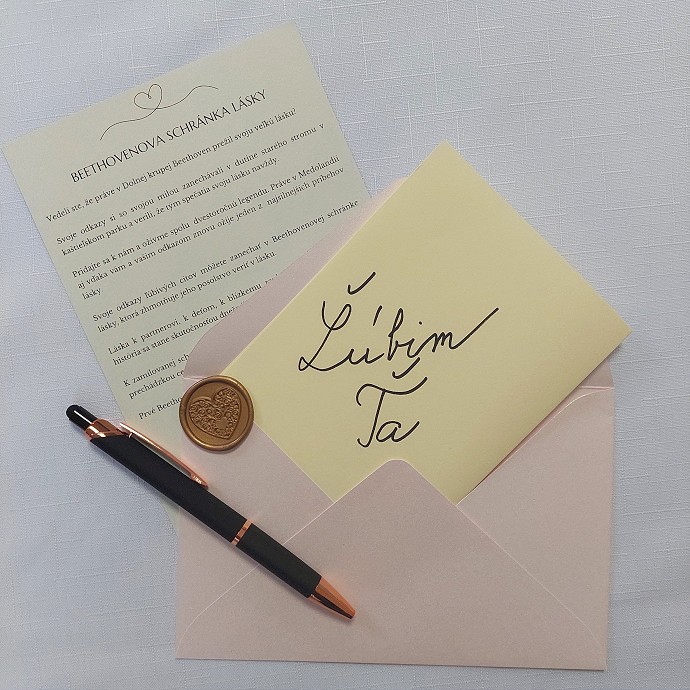 BEETHOVENOVA SCHRÁNKA LÁSKY
Vedeli ste, že práve v Dolnej krupej Beethoven prežil svoju veľkú lásku?
Svoje odkazy si so svojou milou zanechávali v dutine starého stromu v
kaštieľskom parku a verili, že tým spečatia svoju lásku navždy.
Pridajte sa k nám a oživme spolu dvestoročnú legendu. Práve v Medolandii
aj vďaka vám a vašim odkazom znovu ožije jeden z najsilnejších príbehov
lásky.
Svoje odkazy ľúbivých citov môžete zanechať v Beethovenovej schránke
lásky, ktorá zhmotňuje jeho posolstvo veriť v lásku.
Láska k partnerovi, k deťom, k blízkemu
história sa stane skutočnosťou
K zamilovanej
prechádzkou
Prvé
Ľúbim
Ťa